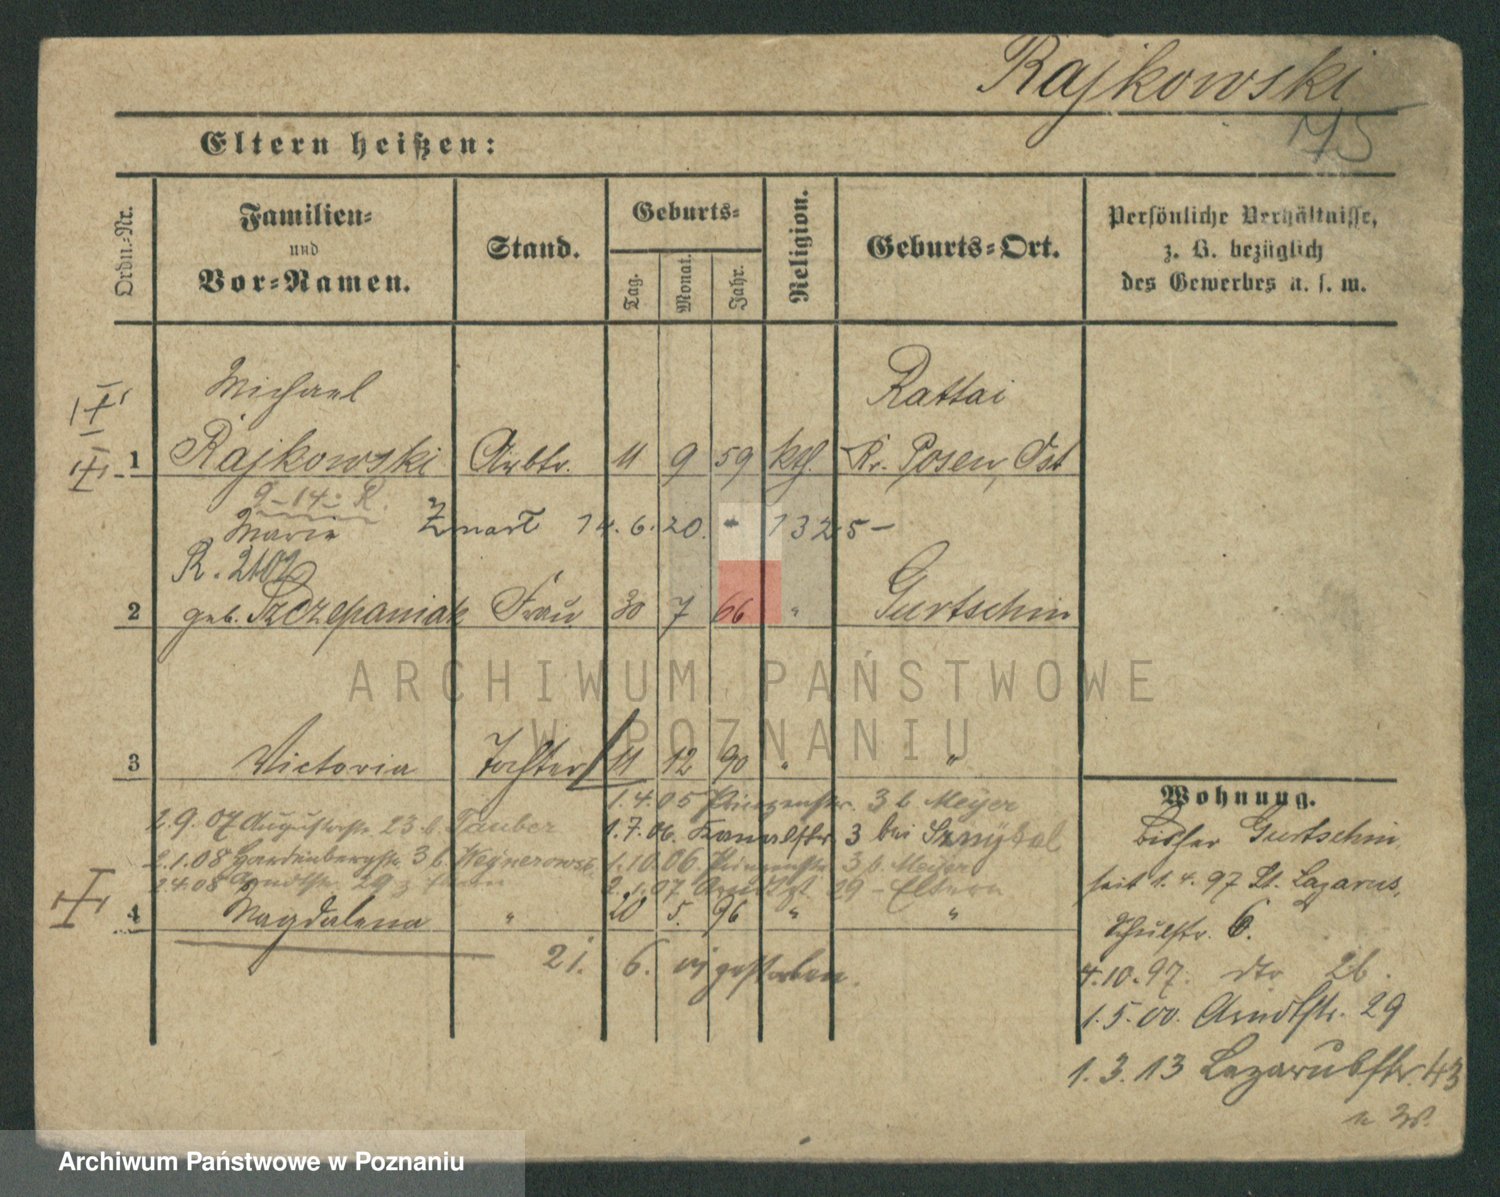 Rajkowski
Eltern heißen:
Ordn.-Nr.
Familien-
und
Vor-Namen.
Stand.
Geburts-
Tag.
Monat.
Jahr.
Religion.
Geburts-Ort.
Persönliche Verhältnisse,
z. B. bezüglich
des Gewerbes u. s. w.
Michael Rattai
1 Rajkowski Arbtr. 11 9 59 kth. Kr. Posen, Ost
9-14- R.
Marie 14. 6. 20. 1325-
R. 2102
2 geb. Szczepaniak Frau 30 7 66 " Gurtschin
ARCHIWUM PAŃSTWOWE
W POZNANIU
3 Victoria Tochter 11 12 90 " "
1.4.05 Prinzenstr. 3 b Meyer
2.9.07 Auguststr. 23 b. Tauber 1.7.06. Kanalstr. 3 bei
2.1.08 Hardenbergstr. 3 b. 1.10.06. Prinzenstr. 3 b. Meyer
2.4.08 Arndtstr. 29 2.1.07. Arndtst. 29 - Eltern
4 Magdalena " 20 5. 96 " "
21. 6. gestorben.
Wohnung.
bisher Gurtschin
seit 1. 4. 97 St. Lazarus,
Schulstr. 6.
4.10.97. dto 26.
1.5.00. Arndtstr. 29
1.3.13 Lazarusstr. 43
Archiwum Państwowe w Poznaniu